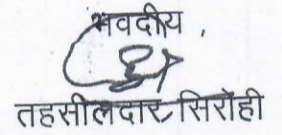 भवदीय ,
तहसीलदार सिरोही